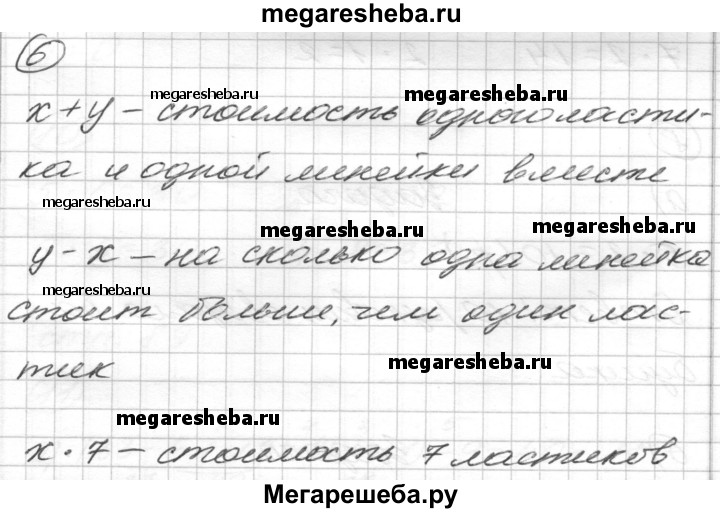 megaresheba.ru
6
megaresheba.ru megaresheba.ru
х + у – стоимость одного ласти-
ка и одной линейки вместе
megaresheba.ru megaresheba.ru
у – х – на сколько одна линейка
megaresheba.ru
стоит больше, чем один лас-
тик megaresheba.ru
megaresheba.ru
х · 7 – стоимость 7 ластиков
Мегарешеба.ру